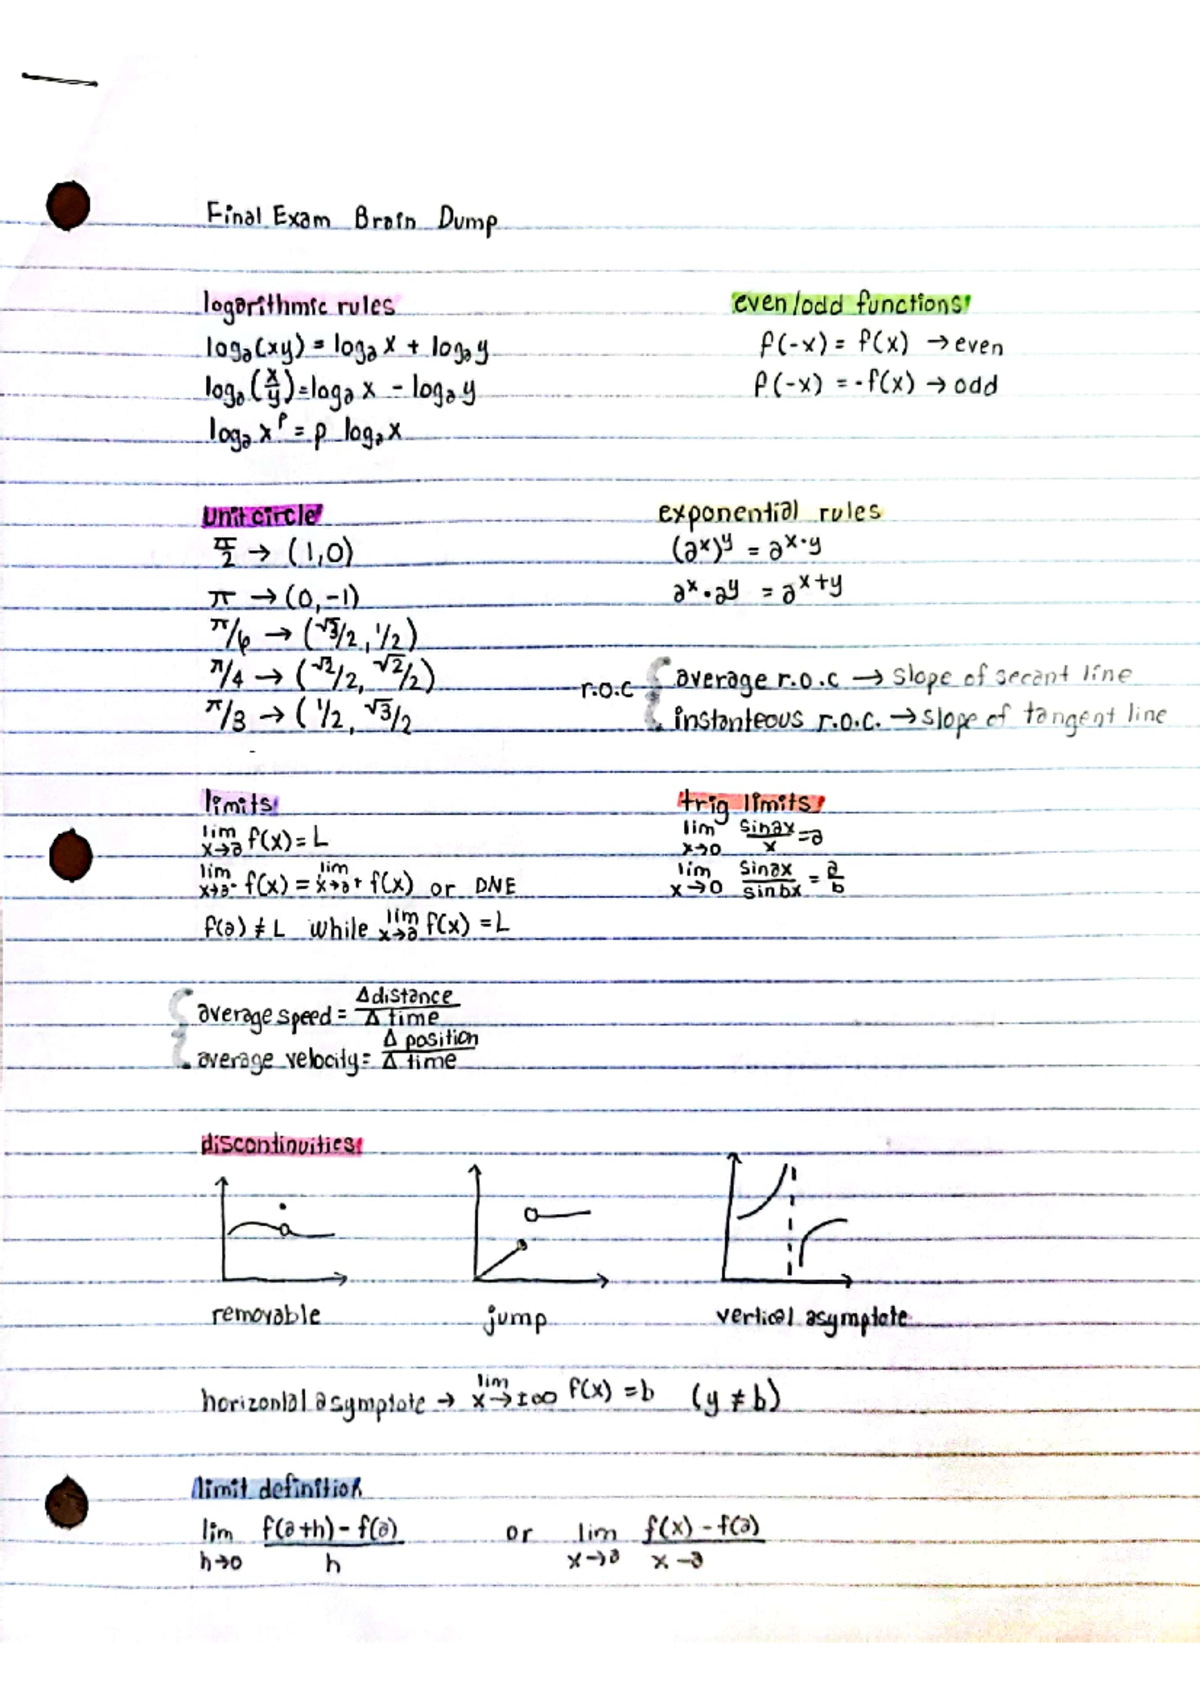 Final Exam Brain Dump
logarithmic rules
logₐ(xy) = logₐ x + logₐ y
logₐ(x/y) = logₐ x - logₐ y
logₐ x^p = p logₐ x
even/odd functions
f(-x) = f(x) → even
f(-x) = -f(x) → odd
Unit circle
π/2 → (1,0)
π → (0,-1)
π/6 → (√3/2, 1/2)
π/4 → (√2/2, √2/2)
π/3 → (1/2, √3/2
exponential rules
(a^x)^y = a^x·y
a^x · a^y = a^x+y
r.o.c
average r.o.c → slope of secant line
instanteous r.o.c. → slope of tangent line
limits
lim x→a f(x) = L
lim x→a⁻ f(x) = lim x→a⁺ f(x) or DNE
f(a) ≠ L while lim x→a f(x) = L
trig limits
lim x→0 sinax/x = a
lim x→0 sinax/sinbx = a/b
average speed = Δdistance/Δ time
average velocity = Δ position/Δ time
discontinuities
removable
jump
vertical asymptote
horizontal asymptote → lim x→±∞ f(x) = b (y ≠ b)
limit definition
lim h→0 f(a+h) - f(a)/h or lim x→a f(x) - f(a)/x - a